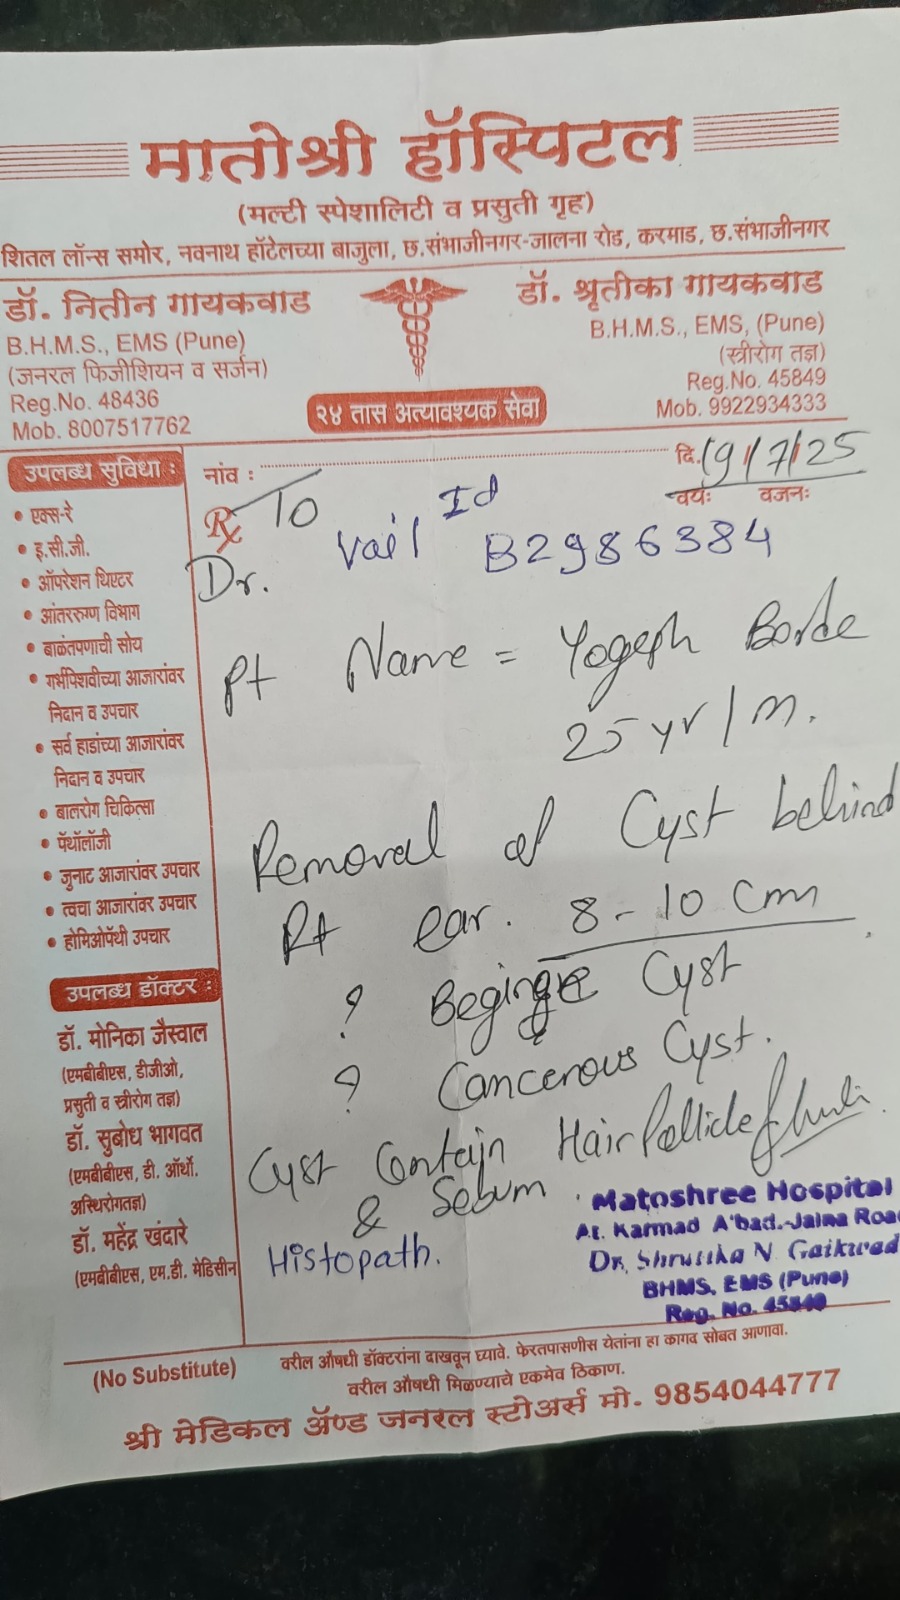 मातोश्री हॉस्पिटल
(मल्टी स्पेशालिटी व प्रसुती गृह)
शितल लॉन्स समोर, नवनाथ हॉटेलच्या बाजुला, छ.संभाजीनगर-जालना रोड, करमाड, छ.संभाजीनगर
डॉ. नितीन गायकवाड
B.H.M.S., EMS (Pune)
(जनरल फिजीशियन व सर्जन)
Reg.No. 48436
Mob. 8007517762
डॉ. श्रृतीका गायकवाड
B.H.M.S., EMS, (Pune)
(स्त्रीरोग तज्ञ)
Reg.No. 45849
Mob. 9922934333
२४ तास अत्यावश्यक सेवा
उपलब्ध सुविधा :
• एक्स-रे
• इ.सी.जी.
• ऑपरेशन थिएटर
• आंतररुग्ण विभाग
• बाळंतपणाची सोय
• गर्भपिशवीच्या आजारांवर
निदान व उपचार
• सर्व हाडांच्या आजारांवर
निदान व उपचार
• बालरोग चिकित्सा
• पॅथॉलॉजी
• जुनाट आजारांवर उपचार
• त्वचा आजारांवर उपचार
• होमिओपॅथी उपचार
उपलब्ध डॉक्टर :
डॉ. मोनिका जैस्वाल
(एमबीबीएस, डीजीओ,
प्रसुती व स्त्रीरोग तज्ञ)
डॉ. सुबोध भागवत
(एमबीबीएस, डी. ऑर्थो.
अस्थिरोगतज्ञ)
डॉ. महेंद्र खंदारे
(एमबीबीएस, एम.डी. मेडिसीन
नांव : दि. 19/7/25
वयः वजनः
Rx To
Vail Id
Dr. B2986384
Pt Name = Yogesh Borde
25 yr / m.
Removal of Cyst behind
Rt ear. 8-10 cm
? Cyst
? Cancerous Cyst.
Cyst Contain Hair follicle
& Sebum.
Histopath.
Matoshree Hospital
At. Karmad A'bad.-Jalna Road
Dr. Shrutika N. Gaikwad
BHMS, EMS (Pune)
Reg. No. 45849
(No Substitute)
वरील औषधी डॉक्टरांना दाखवून घ्यावे. फेरतपासणीस येतांना हा कागद सोबत आणावा.
वरील औषधी मिळण्याचे एकमेव ठिकाण.
श्री मेडिकल ॲण्ड जनरल स्टोअर्स मो. 9854044777